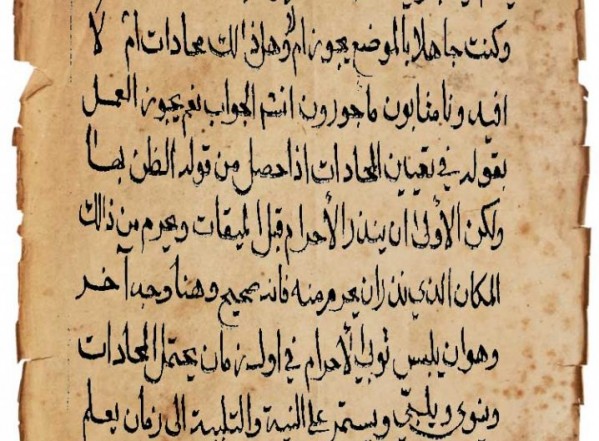 وكنت جاهلا بالموضع يجوز ام لا وهل ذالك محاذات ام لا
افيدونا مثابون ماجورون انتم الجواب نعم يجوز العمل
بقوله في تعيين المحاذات اذا حصل من قوله الظن بها
ولكن الأولى ان ينذر الأحرام قبل الميقات ويحرم من ذالك
المكان الذي نذر ان يحرم منه فانه صحيح وهنا وجه آخر
وهو ان يلبس ثوبي الأحرام في اول زمان يحتمل المحاذات
وينوي ويلبي ويستمر على النية والتلبية الى زمان يعلم